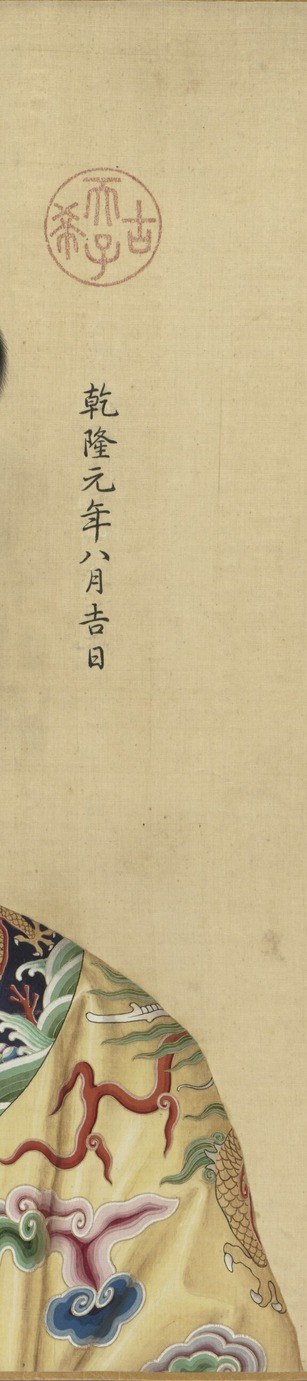 古希天子
乾隆元年八月吉日